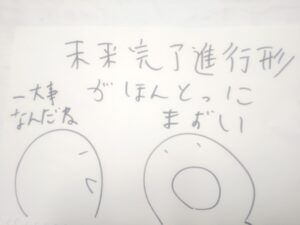 未来完了進行形
がほんとっに
まずい
一大事
なんだね